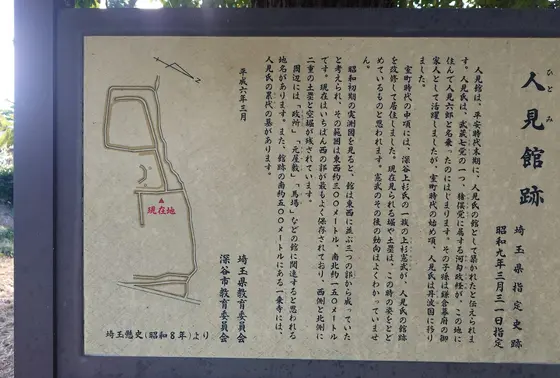 人見館跡
ひとみ
埼玉県指定史跡
昭和九年三月三一日指定
人見館は、平安時代末期に、人見氏の館として築かれたと伝えられま
す。人見氏は、武蔵七党の一つ、猪俣党に属する河匂政経が、この地に
住んで人見六郎と名乗ったのにはじまります。その子孫は鎌倉幕府の御
家人として活躍しましたが、室町時代の始め頃、人見氏は丹波国に移り
ました。
室町時代の中頃には、深谷上杉氏の一族の上杉憲武が、人見氏の館跡
を改修して居住しました。現在見られる堀や土塁は、この時の姿をとど
めているものと思われます。憲武のその後の動向はよくわかっていませ
ん。
昭和初期の実測図を見ると、館は東西に並ぶ三つの郭から成っていた
と考えられ、その範囲は東西約三〇〇メートル、南北約一五〇メートル
です。現在はいちばん西の郭が最もよく保存されており、西側と北側に
二重の土塁と空堀が残されています。
周辺には「政所」「元屋敷」「馬場」などの館に関連すると思われる
地名があります。また、館跡の南約五〇〇メートルにある一乗寺には、
人見氏の累代の墓があります。
平成六年三月
埼玉県教育委員会
深谷市教育委員会
現在地
埼玉縣史(昭和8年)より